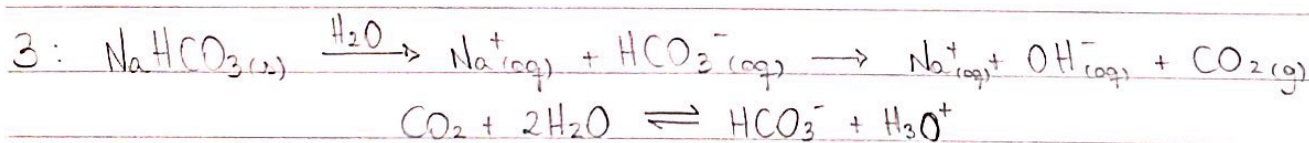 3: NaHCO₃(s) —H₂O→ Na⁺(aq) + HCO₃⁻(aq) ⟶ Na⁺(aq) + OH⁻(aq) + CO₂(g)
CO₂ + 2H₂O ⇌ HCO₃⁻ + H₃O⁺